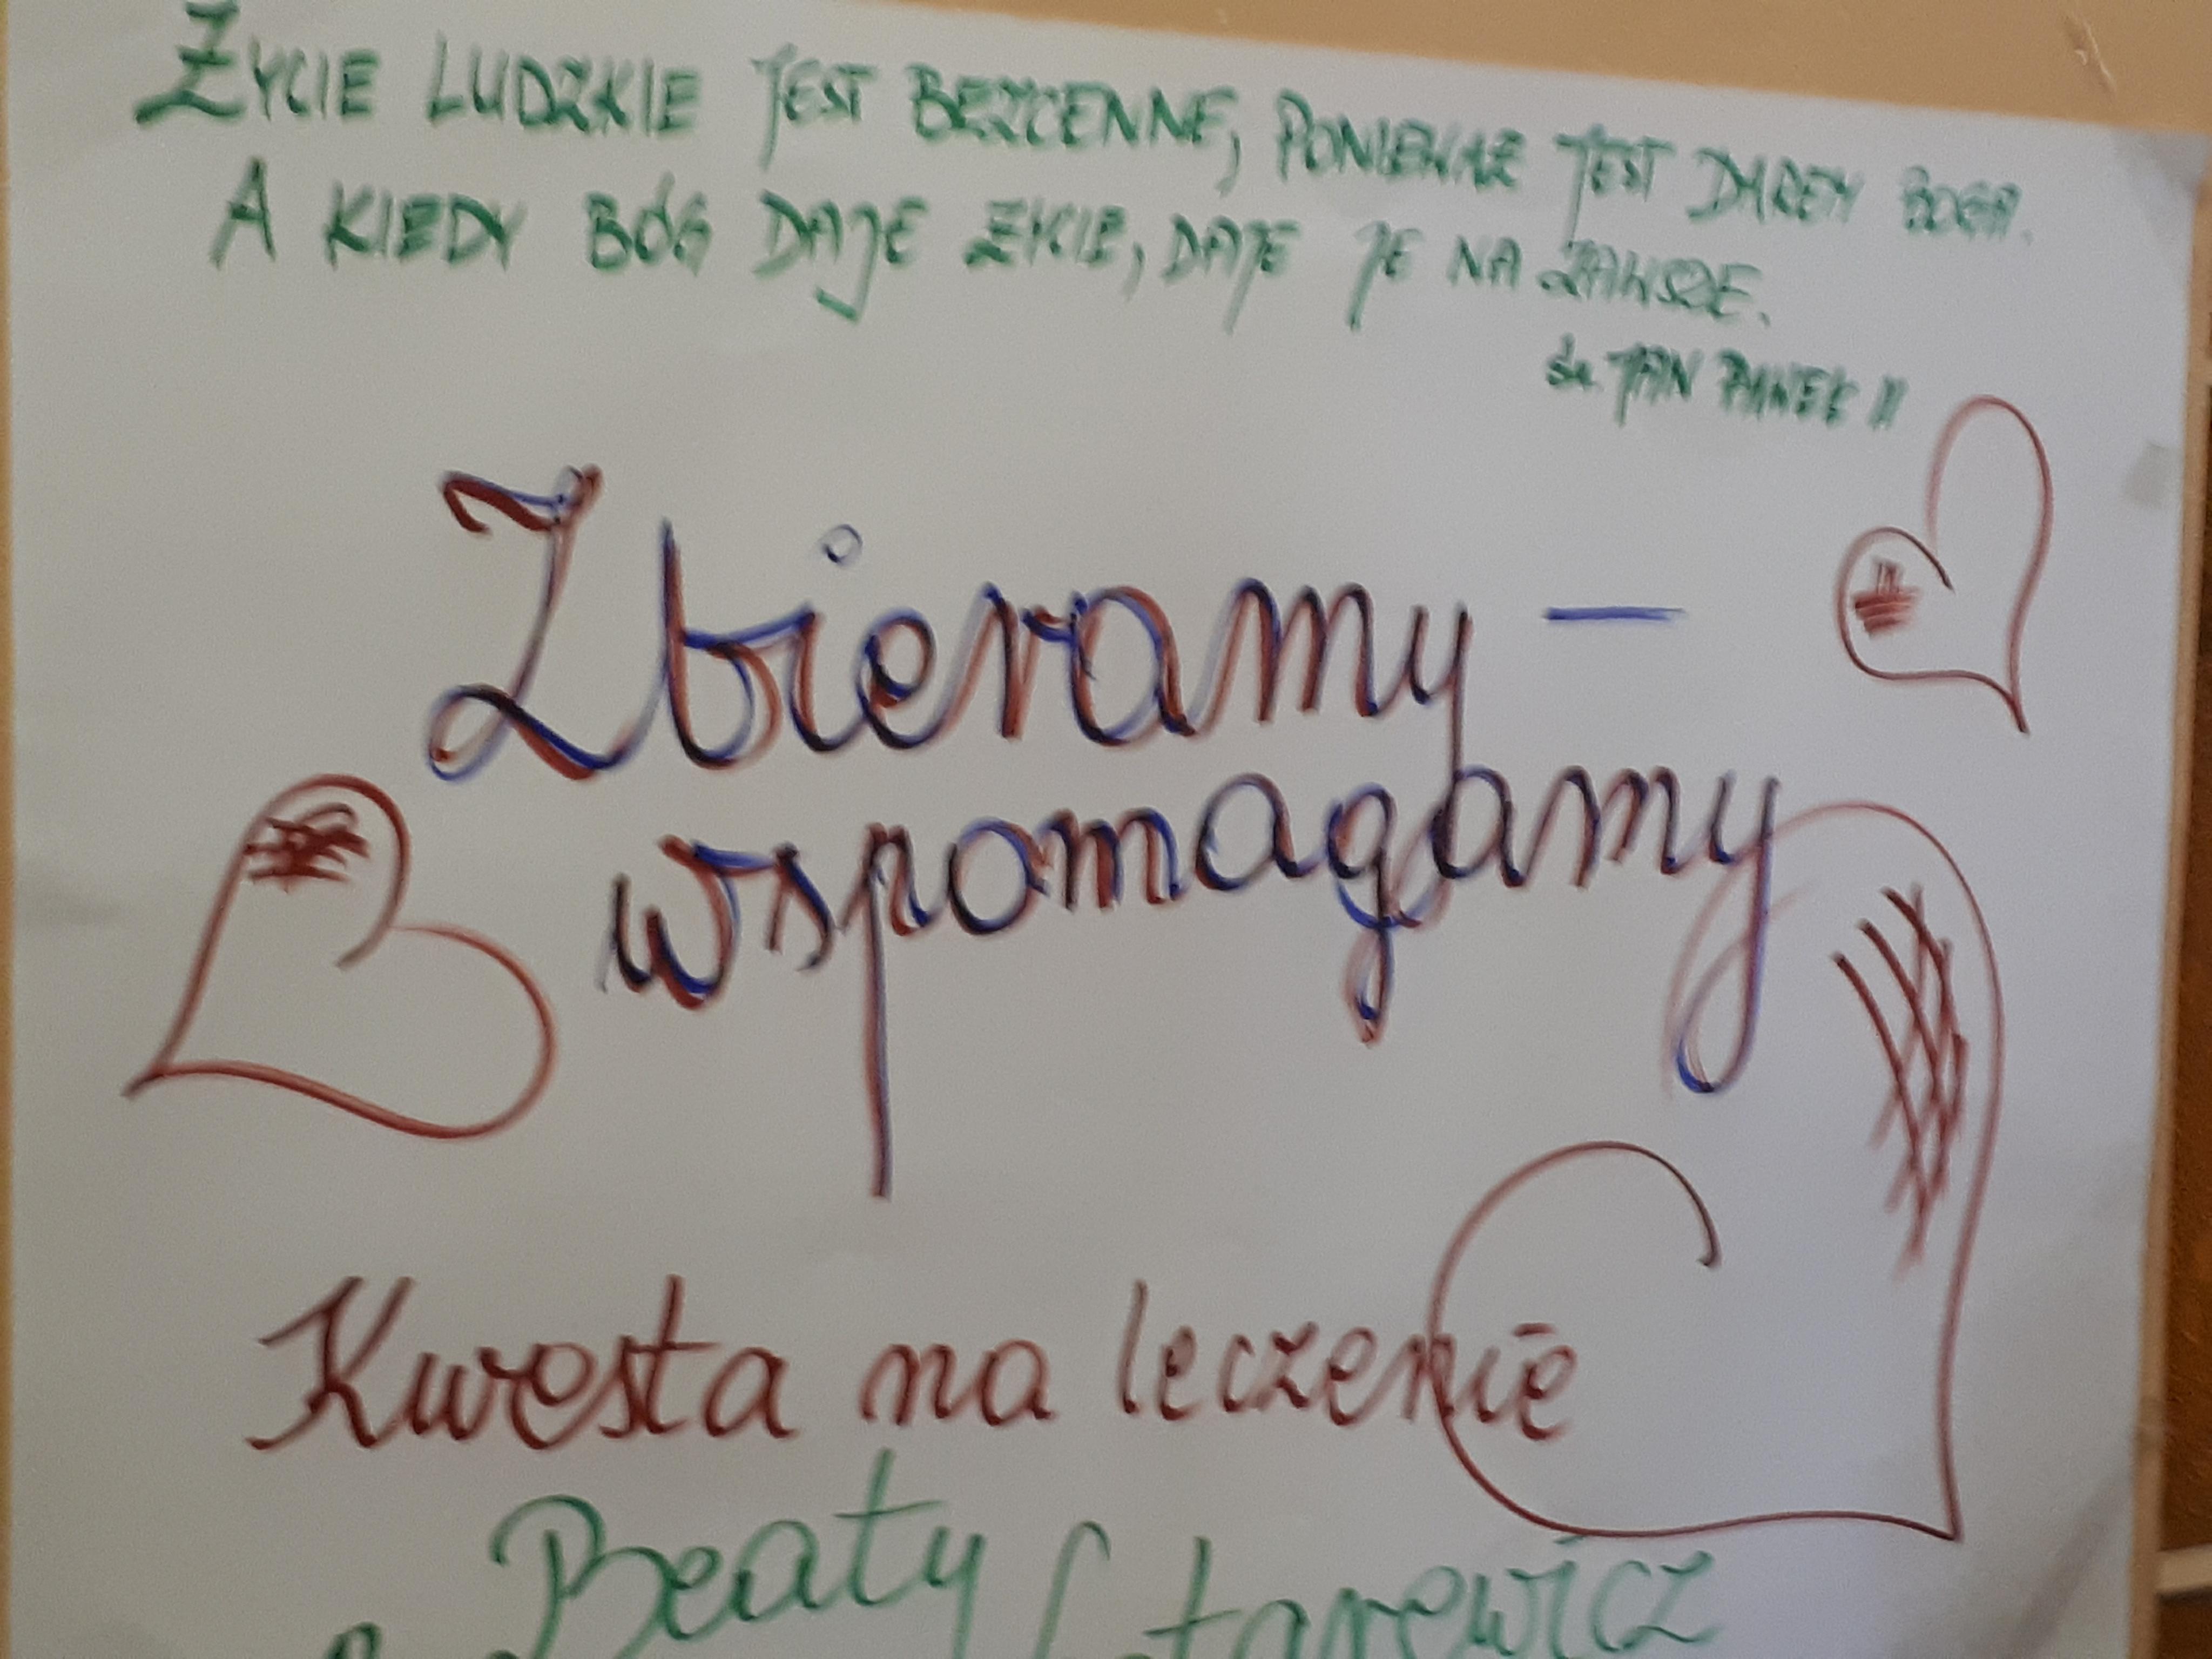 ŻYCIE LUDZKIE JEST BEZCENNE, PONIEWAŻ JEST DAREM BOGA.
A KIEDY BÓG DAJE ŻYCIE, DAJE JE NA ZAWSZE.
św. JAN PAWEŁ II
Zbieramy –
wspomagamy
Kwesta na leczenie
Beaty